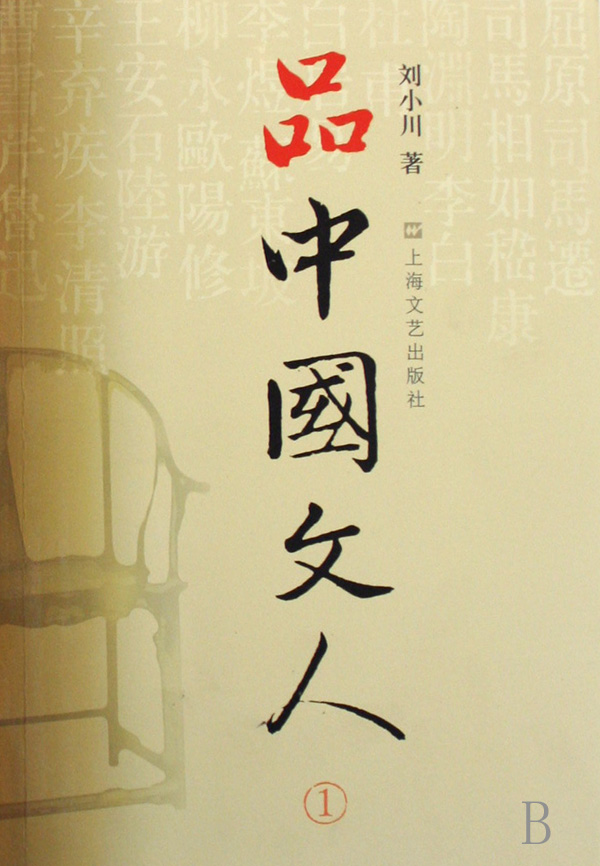 屈原司馬遷
司馬相如嵇康
陶淵明李白
杜甫
白居易
李煜蘇東坡
柳永歐陽修
王安石陸游
辛弃疾李清照
曹雪芹魯迅
刘小川 著
上海文艺出版社
品中國文人
1
B